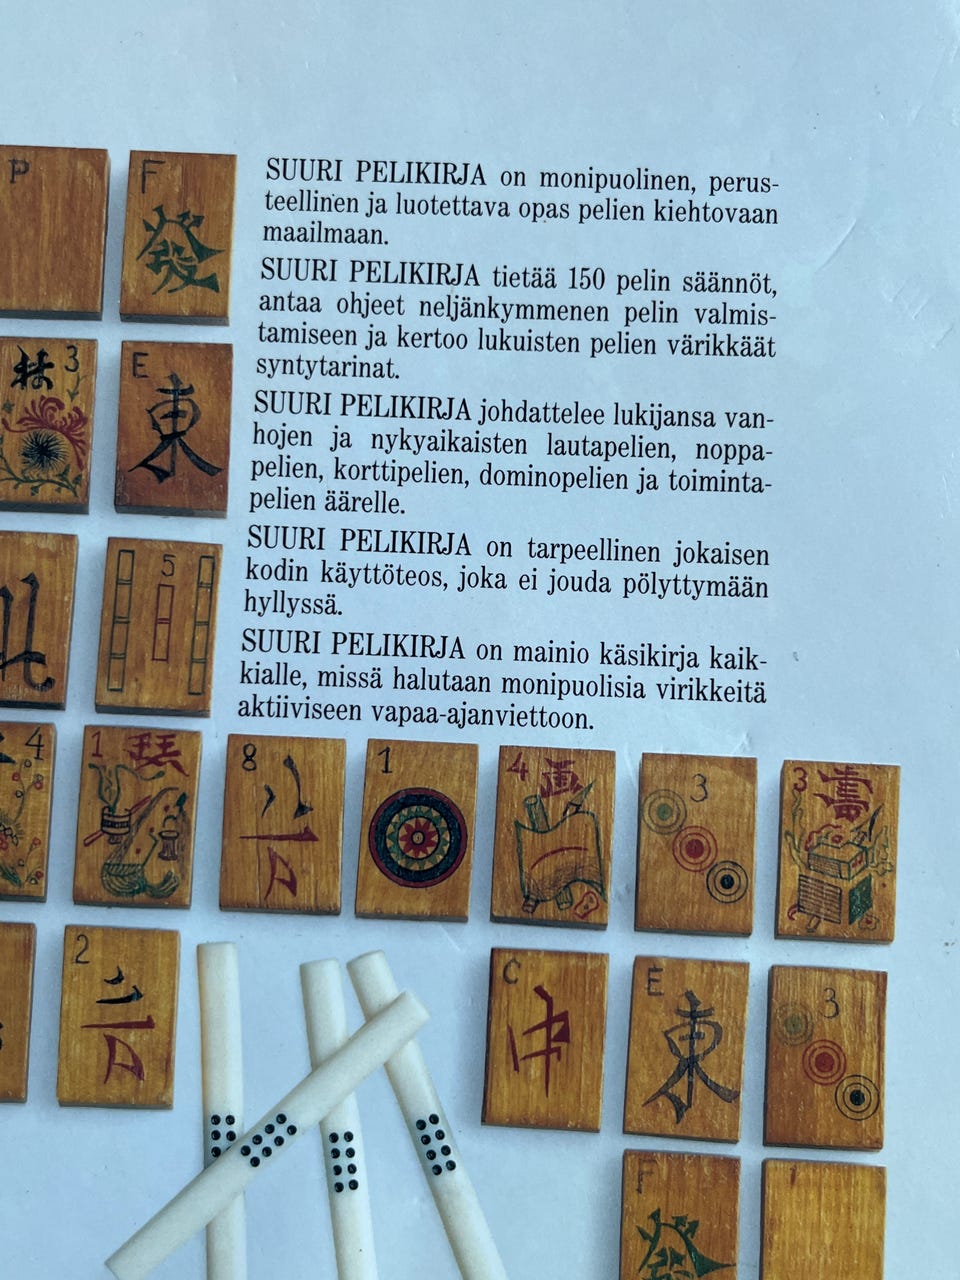 P
F
發
SUURI PELIKIRJA on monipuolinen, perus-
teellinen ja luotettava opas pelien kiehtovaan
maailmaan.
SUURI PELIKIRJA tietää 150 pelin säännöt,
antaa ohjeet neljänkymmenen pelin valmis-
tamiseen ja kertoo lukuisten pelien värikkäät
syntytarinat.
3
E
東
SUURI PELIKIRJA johdattelee lukijansa van-
hojen ja nykyaikaisten lautapelien, noppa-
pelien, korttipelien, dominopelien ja toiminta-
pelien äärelle.
5
SUURI PELIKIRJA on tarpeellinen jokaisen
kodin käyttöteos, joka ei jouda pölyttymään
hyllyssä.
SUURI PELIKIRJA on mainio käsikirja kaik-
kialle, missä halutaan monipuolisia virikkeitä
aktiiviseen vapaa-ajanviettoon.
4
1
8
1
4
3
3
2
二
C
中
E
東
3
F
發